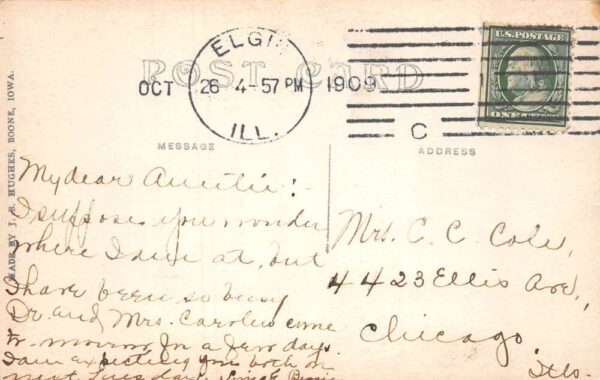 ELGIN
POST CARD
OCT 26 4-57 PM 1909
ILL.
C
U.S. POSTAGE
ONE
MESSAGE
ADDRESS
MADE BY J. B. HUGHES, BOONE, IOWA.
My dear Auntie:
I suppose you wonder
where I am at, but
I have been so busy
Dr. and Mrs. come
to-morrow for a few days.
I am expecting you both on
next Tuesday.
Mrs. C. C. Cole,
4423 Ellis Ave,
Chicago
Ills.